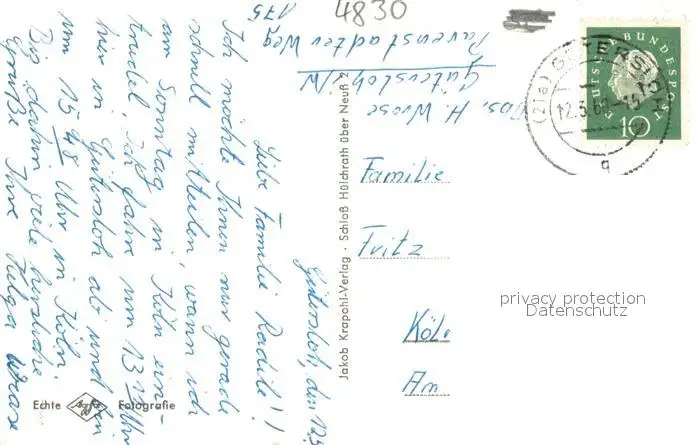 4830
Abs. H. Wrase
Gütersloh i/W
Pavenstädter Weg
175
DEUTSCHE BUNDESPOST
10
(21a) GÜTERSLOH
12.5.60-15
q
Gütersloh, den 12.5.
Liebe Familie Radile!!
Ich möchte Ihnen nur gerade
schnell mitteilen, wann ich
am Sonntag in Köln ein-
trudel. Ich fahre um 13 Uhr
hier in Gütersloh ab und bin
um 15 48 Uhr in Köln.
Bis dahin viele herzliche
Grüße Ihre Helga Wrase
Jakob Krapohl-Verlag · Schloß Hülchrath über Neuß 2
Familie
Fritz
Köln
Am
privacy protection
Datenschutz
Echte Agfa Fotografie